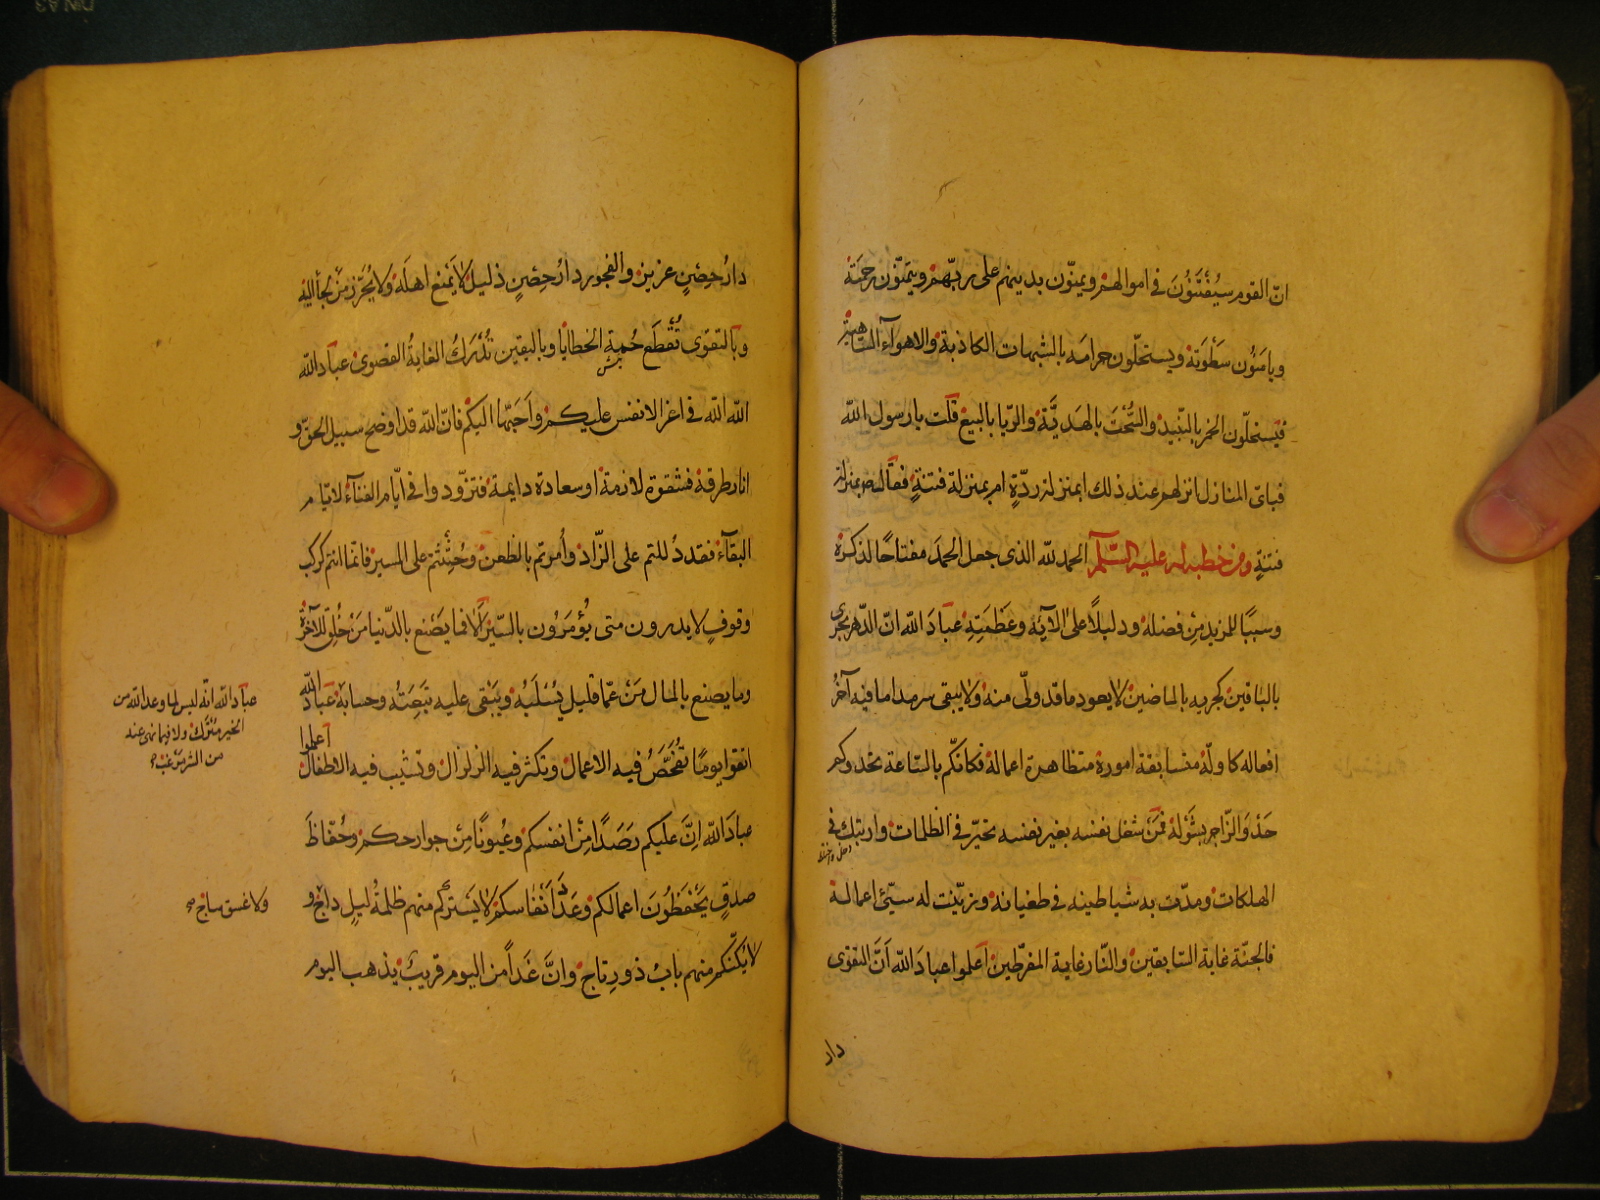 انّ القوم سيُفْتَنُوْنَ في اموالهم ويمنّون بدينهم على ربّهم ويتمنّون رحمتَهُ
ويأمَنُون سَطْوَتَه ويستحلّون حرامَه بالشبهات الكاذبة والاهوآء السّاهية
فيستحلّون الخمر بالنّبيذ والسُّحْتَ بالهَدِيَّةِ والرّبا بالبيع قلت يا رسول الله
فبايّ المنازل انزلهم عند ذلك ابمنزلة رِدّةٍ ام بمنزلة فتنةٍ فقال ص بمنزلة
فتنةٍ ومن خطبة له عليه السّلام الحمد لله الذى جعل الحمدَ مفتاحًا لذكره
وسببًا للمزيد مِن فضله ودليلاً على الآئِه وعَظَمَتِهِ عبادَ الله انّ الدّهر يجرى
بالباقين كجريه بالماضين لا يعود ما قد ولّى منه ولا يبقى سرمدا ما فيه آخرُ
افعاله كاوّله متسابقة اموره متظاهرة اعلامه فكانّكم بالسّاعة تحدوكم
حَدْوَ الزّاجر بشَوْلِه فمَنْ شغل نفسَه بغير نفسه تحيّر في الظلمات وارتبك في
الهلكات ومدّت به شياطينه في طغيانه وزيّنت له سيّئ اعماله
فالجنّة غاية السّابقين والنّار غاية المفرّطين اعلموا عبادَ الله اَنَّ التقوى
دار
دارُ حِصْنٍ عزيزٍ والفجور دارُ حِصْنٍ ذليل لا يَمْنع اهلَه ولا يُحْرِز مَنْ لجأ اليه
وبالتقوى تُقْطَع حُمةُ الخطايا وباليقين تُدْرَكُ الغايةُ القصوى عبادَ الله
اللهَ اللهَ في اعزّ الانفس عليكم واَحَبّها اليكم فانّ الله قد اوضح سبيل الحقّ و
انار طرقه فشقوة لازمة او سعادة دايمة فتزوّدوا في ايّام الفنآء لايّام
البقآء فقد دُلِلْتم على الزّاد واُمِرْتم بالظعن وحُثِثْتُم على المسير فانّما انتم كركب
وقوفٍ لا يدرون متى يُؤْمَرُون بالسّير اَلَا فما يَصْنع بالدّنيا مَنْ خُلِقَ للآخرة
وما يصنع بالمال مَنْ عمّا قليل يُسْلَبُه ويَبْقى عليه تَبِعَتُه وحسابه عبادَ الله
عبادَ الله انّه ليس لما وعد الله من
الخير مَتْرَك ولا فيما نهى عنه
من الشر مَرْغَب
احذروا
يومًا تُفْحَصُ فيه الاعمال ويكثر فيه الزلزال وتشيب فيه الاطفال
عبادَ الله اِنَّ عليكم رَصَدًا مِنْ انفسكم وعُيونًا مِنْ جوارحكم وحُفّاظَ
صدقٍ يَحْفَظُونَ اعمالكم وعَدَدَ اَنْفاسكم لا يَسْتركم منهم ظلمةُ ليلٍ داجٍ و
ولا غسق ساج
لا يُكِنّكم منهم بابٌ ذو رِتاجٍ وانَّ غَدًا من اليوم قريبٌ يذهب اليوم